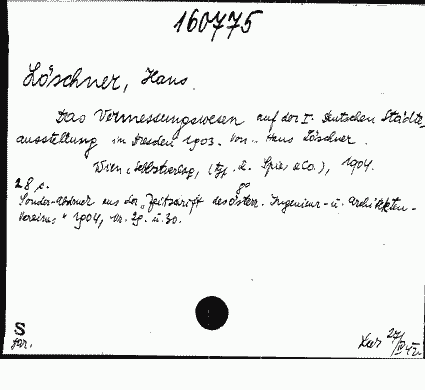 160775
Löschner, Hans.
Das Vermessungswesen auf der I. Deutschen Städte-
ausstellung in Dresden 1903. Von Hans Löschner.
Wien, Selbstverlag, (typ. R. Spies & Co.), 1904.
28 s. 8°
Sonder-Abdruck aus der „Zeitschrift des österr. Ingenieur- u. Architekten-
Vereins," 1904, nr. 29. u. 30.
S